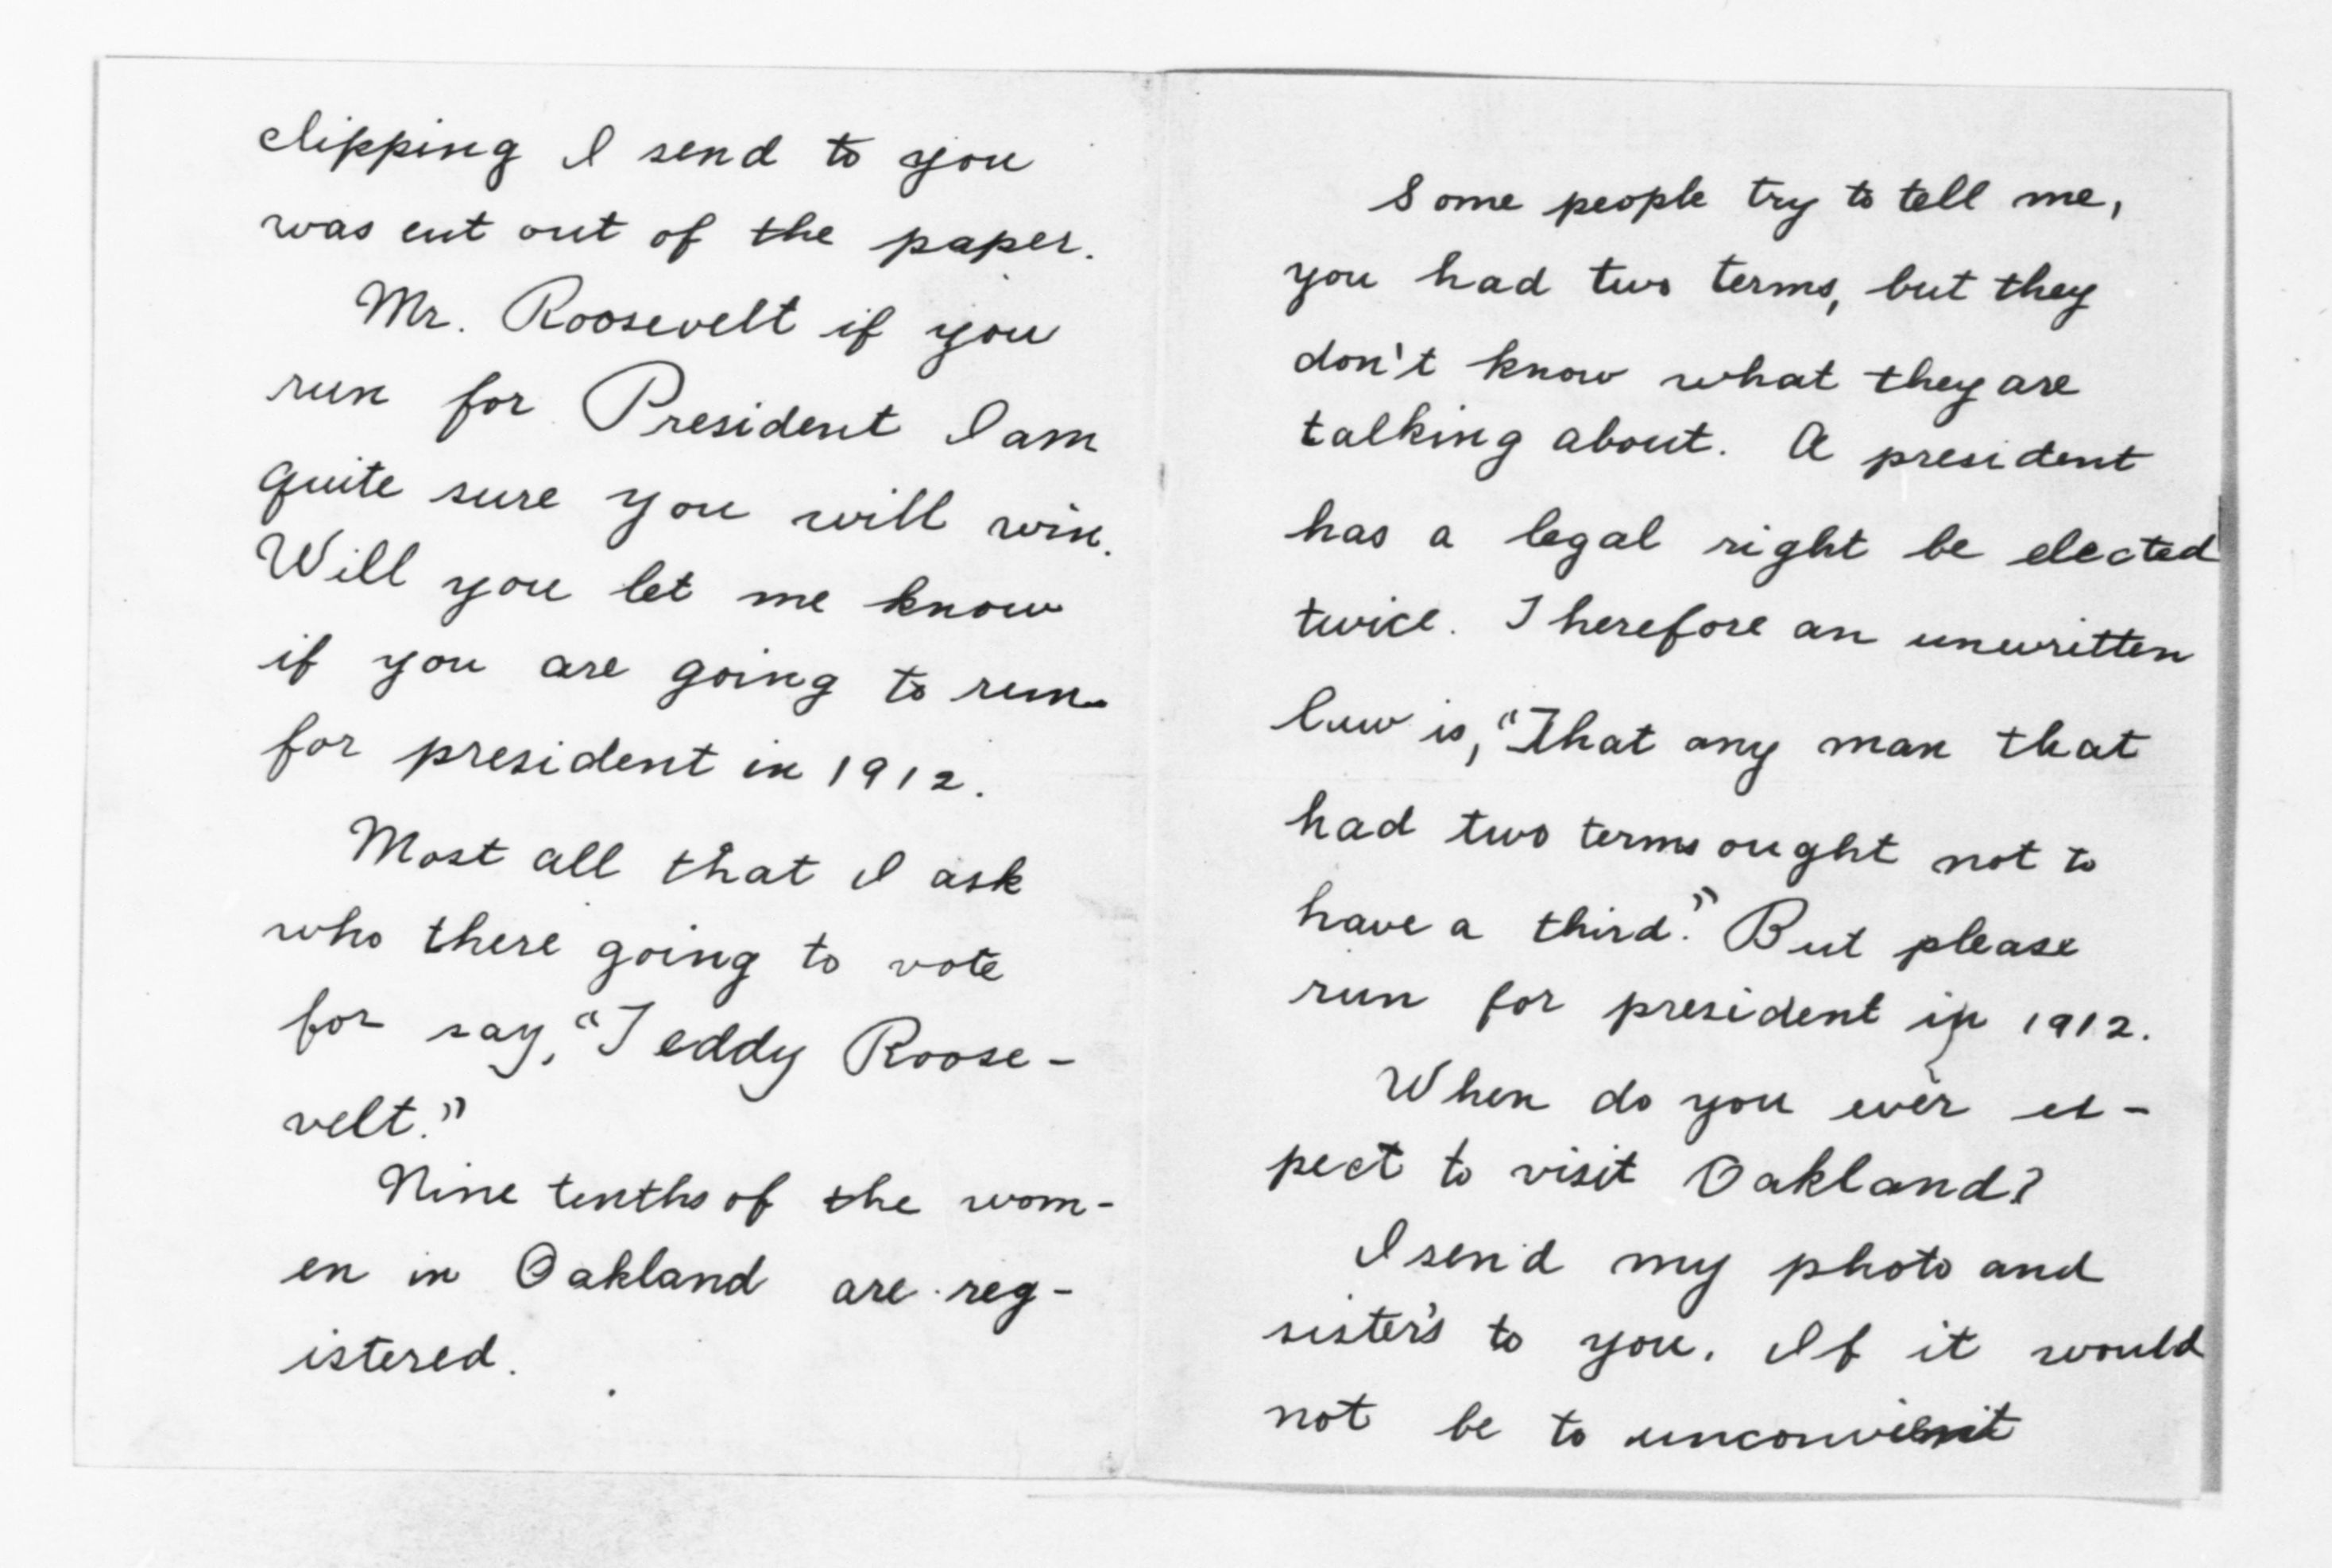 clipping I send to you
was cut out of the paper.
Mr. Roosevelt if you
run for President I am
quite sure you will win.
Will you let me know
if you are going to run
for president in 1912.
Most all that I ask
who there going to vote
for say, "Teddy Roose-
velt."
Nine tenths of the wom-
en in Oakland are reg-
istered.
Some people try to tell me,
you had two terms, but they
don't know what they are
talking about. A president
has a legal right be elected
twice. Therefore an unwritten
law is, "That any man that
had two terms ought not to
have a third." But please
run for president in 1912.
When do you ever ex-
pect to visit Oakland?
I send my photo and
sister's to you. If it would
not be to